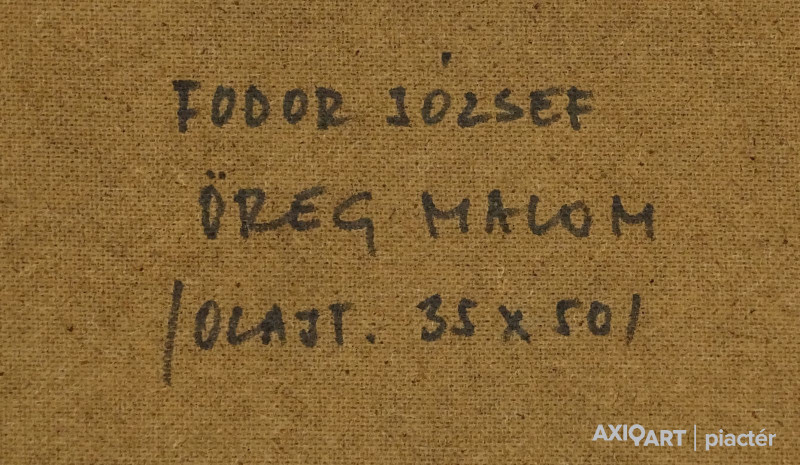 FODOR JÓZSEF
ÖREG MALOM
/OLAJT. 35 x 50/
AXIOART | piactér